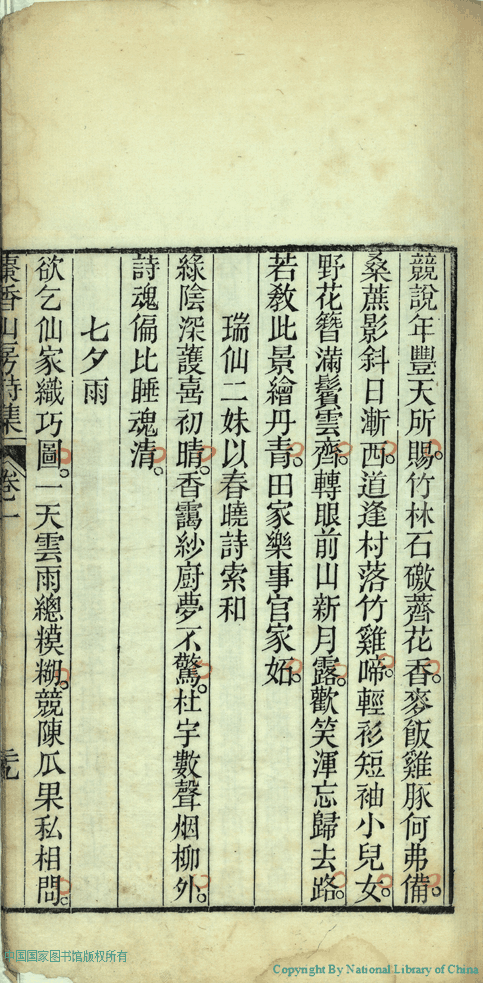 競說年豐天所賜竹林石磝薺花香麥飯雞豚何弗備
桑蔴影斜日漸西道逢村落竹雞啼輕衫短袖小兒女
野花簪滿鬢雲齊轉眼前山新月露歡笑渾忘歸去路
若教此景繪丹青田家樂事官家妬
瑞仙二妹以春曉詩索和
綠陰深護喜初晴香靄紗廚夢不驚杜宇數聲烟柳外
詩魂偏比睡魂清
七夕雨
欲乞仙家織巧圖一天雲雨總糢糊競陳瓜果私相問
香山房詩集 卷一
中国国家图书馆版权所有
Copyright By National Library of China